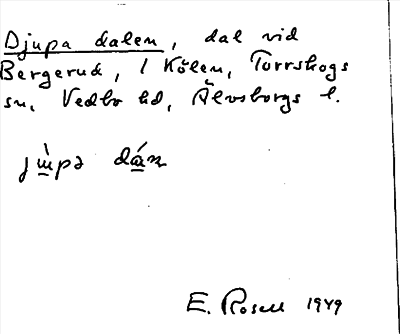 Djupa dalen, dal vid
Bergerud, i Kölen, Torrskogs
sn, Vedbo hd, Älvsborgs l.
jùpə dán
E. Rosell 1949